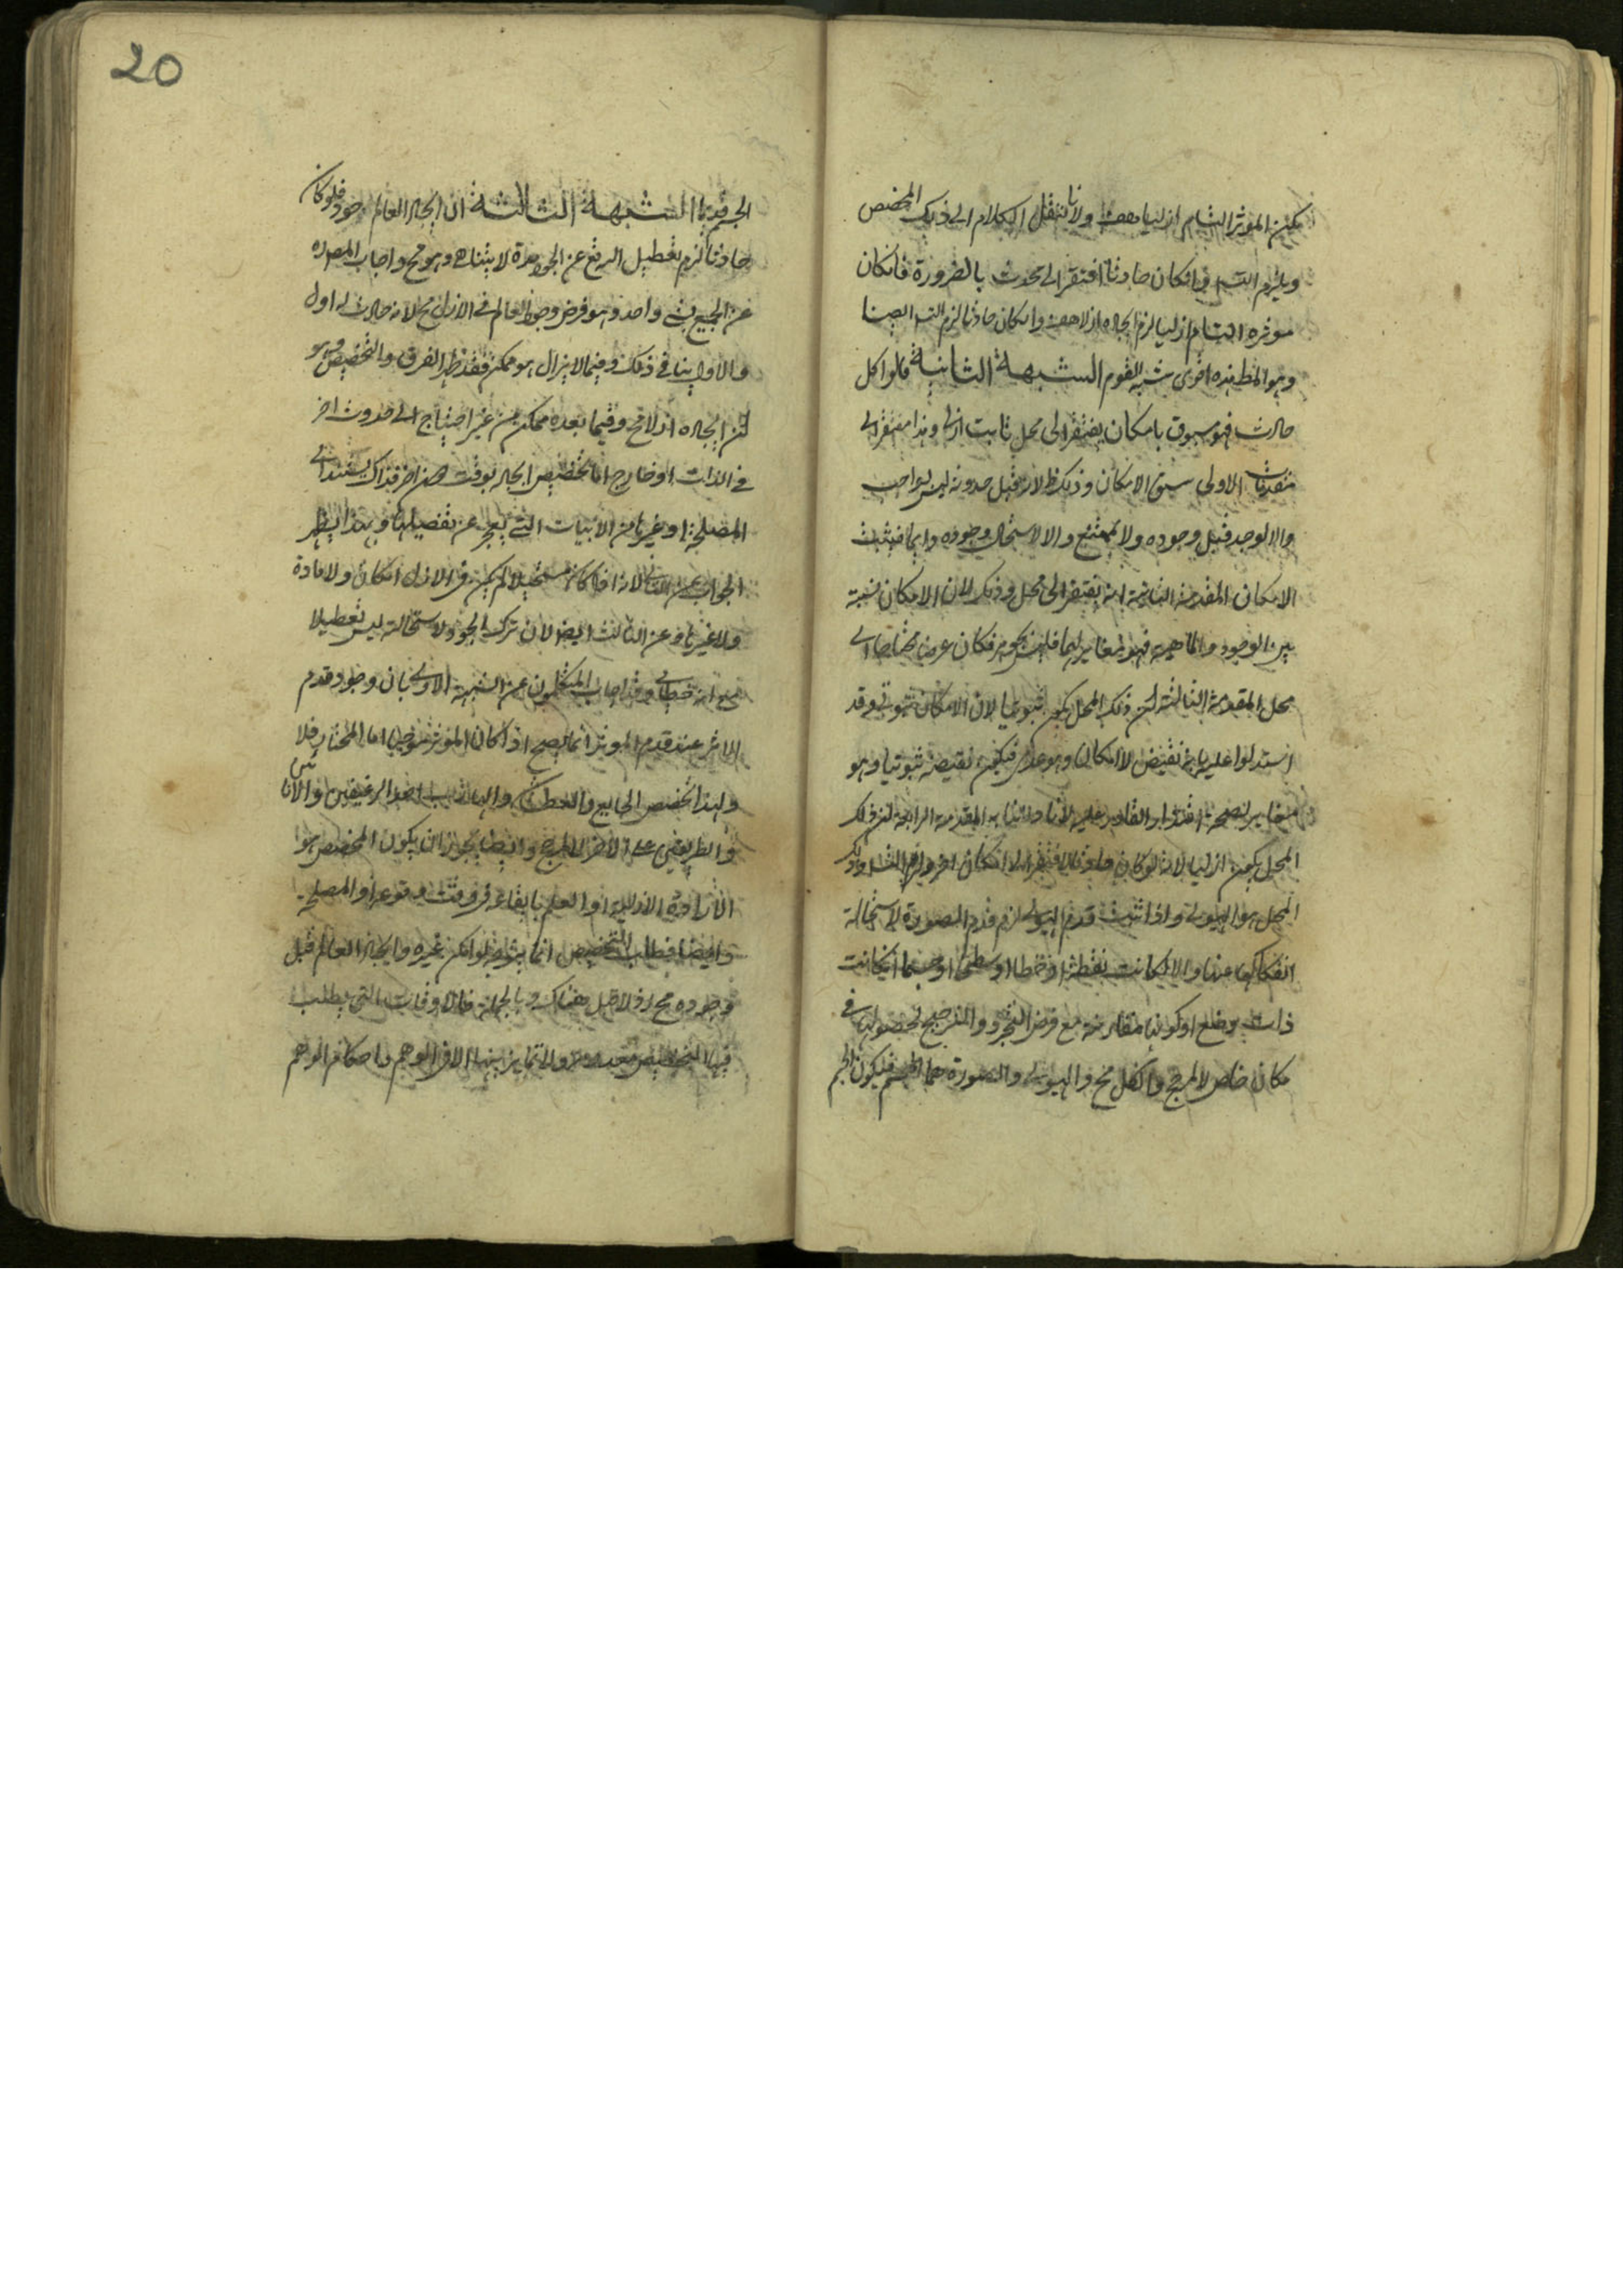 يكن المؤثر التام ازليا هف ولانا ننقل الكلام الى ذلك المخصص
ويلزم التسـ فان كان حادثا افتقر الى محدث بالضرورة فان كان
موثره التام ازليا لزم ايجاده ازلا هف وان كان حادثا لزم التسـ ايضا
وهو المط فهذه اقوى شبه القوم الشبهة الثانية قالوا كل
حادث فهو مسبوق بامكان يفتقر الى محل ثابت ازلى وهذا مفتقر الى
مقدمات الاولى سبق الامكان وذلك ظ لانه قبل حدوثه ليس بواجب
والا لوجد قبل وجوده ولا بممتنع والا لاستحال وجوده دايما فيثبت
الامكان المقدمة الثانية انه يفتقر الى محل وذلك لان الامكان نسبة
بين الوجود والماهية فهو مغاير لهما فليس بجوهر فكان عرضا محتاجا الى
محل المقدمة الثالثة ان ذلك المحل يكون ثبوتيا لان الامكان ثبوتى وقد
استدلوا عليه بانه نقيض لا امكان وهو عدمى فيكون نقيضه ثبوتيا وهو
مغاير لصحة اقتدار القادر عليه لانا المقدمة الرابعة ان ذلك
المحل يكون ازليا لانه لو كان حادثا لافتقر الى امكان اخر ولزم التسـ وذلك
المحل هو الهيولى واذا ثبت قدم الهيولى لزم قدم الصورة لاستحالة
انفكاكها عنها والا لكانت نقطة او خطا او سطحا او جسما ان كانت
ذات وضع او كونها مقارنة مع فرض التجرد والترجيح لحصولها فى
مكان خاص لا لمرجح والكل مح والهيولى والصورة هما الجسم فيكون الجسم
الجسم قديما الشبهة الثالثة ان ايجاد العالم جود فلو كان
حادثا لزم تعطيل البارئ عن الجود مدة لا يتناهى وهو مح واجاب المصـ
عن الجميع بشئ واحد وهو فرض وجود العالم فى الازل مح لانه حادث له اول
والاول ينافى ذلك وفيما لا يزال هو ممكن فقد ظهر الفرق والتخصيص وهو
ان ايجاده ازلا مح وفيما بعده ممكن من غير احتياج الى حدوث امر
فى الذات او خارج اما تخصيص ايجاده بوقت دون اخر فذاك يستند الى
المصلحة او غيرها من الاسباب التى يعجز عن تفصيلها وبهذا يظهر
الجواب عن الثانى لانه اذا كان مستحيلا لم يكن فى الازل امكان ولا مادة
ولا غيرها وعن الثالث ايضا لان ترك الجود لاستحالته ليس تعطيلا
مع انه خطابى وقد اجاب المتكلمون عن الشبهة الاولى بان وجود قدم
الاثر عند قدم الموثر انما يصح اذا كان الموثر موجبا اما المختار فلا
ولهذا تخصص الجايع والعطشان والهارب احد الرغيفين والاناءين
والطريقين على الاخر لا لمرجح وايضا يجوز ان يكون المخصص هو
الارادة الازلية او العلم بايقاعه فى وقت وقوعه او المصلحة
وايضا فطلب التخصيص انما يتوجه لو امكن غيره وايجاد العالم قبل
وجوده مح اذ لا قبل هناك وبالجملة فالاوقات التى يطلب
فيها التخصيص معدومة ولا تمايز بينها الا فى الوهم واحكام الوهم
20